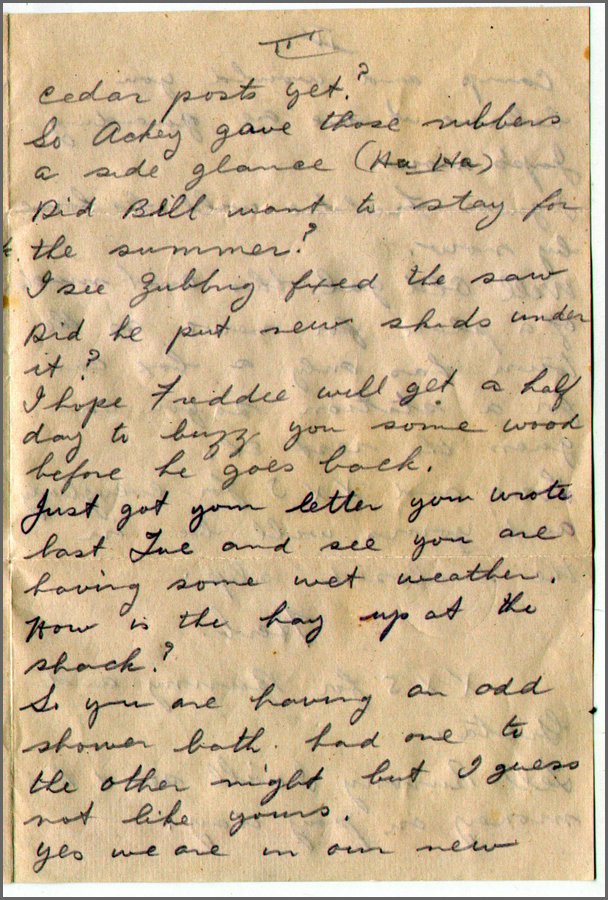 II
cedar posts yet?
So Ackey gave those rubbers
a side glance (Ha Ha)
Did Bill want to stay for
the summer?
I see Zubbrig fixed the saw
Did he put new skids under
it?
I hope Freddie will get a half
day to buzz you some wood
before he goes back.
Just got your letter you wrote
last Tue and see you are
having some wet weather.
How is the hay up at the
shack?
So you are having an odd
shower bath. had one to
the other night but I guess
not like yours.
Yes we are in our new